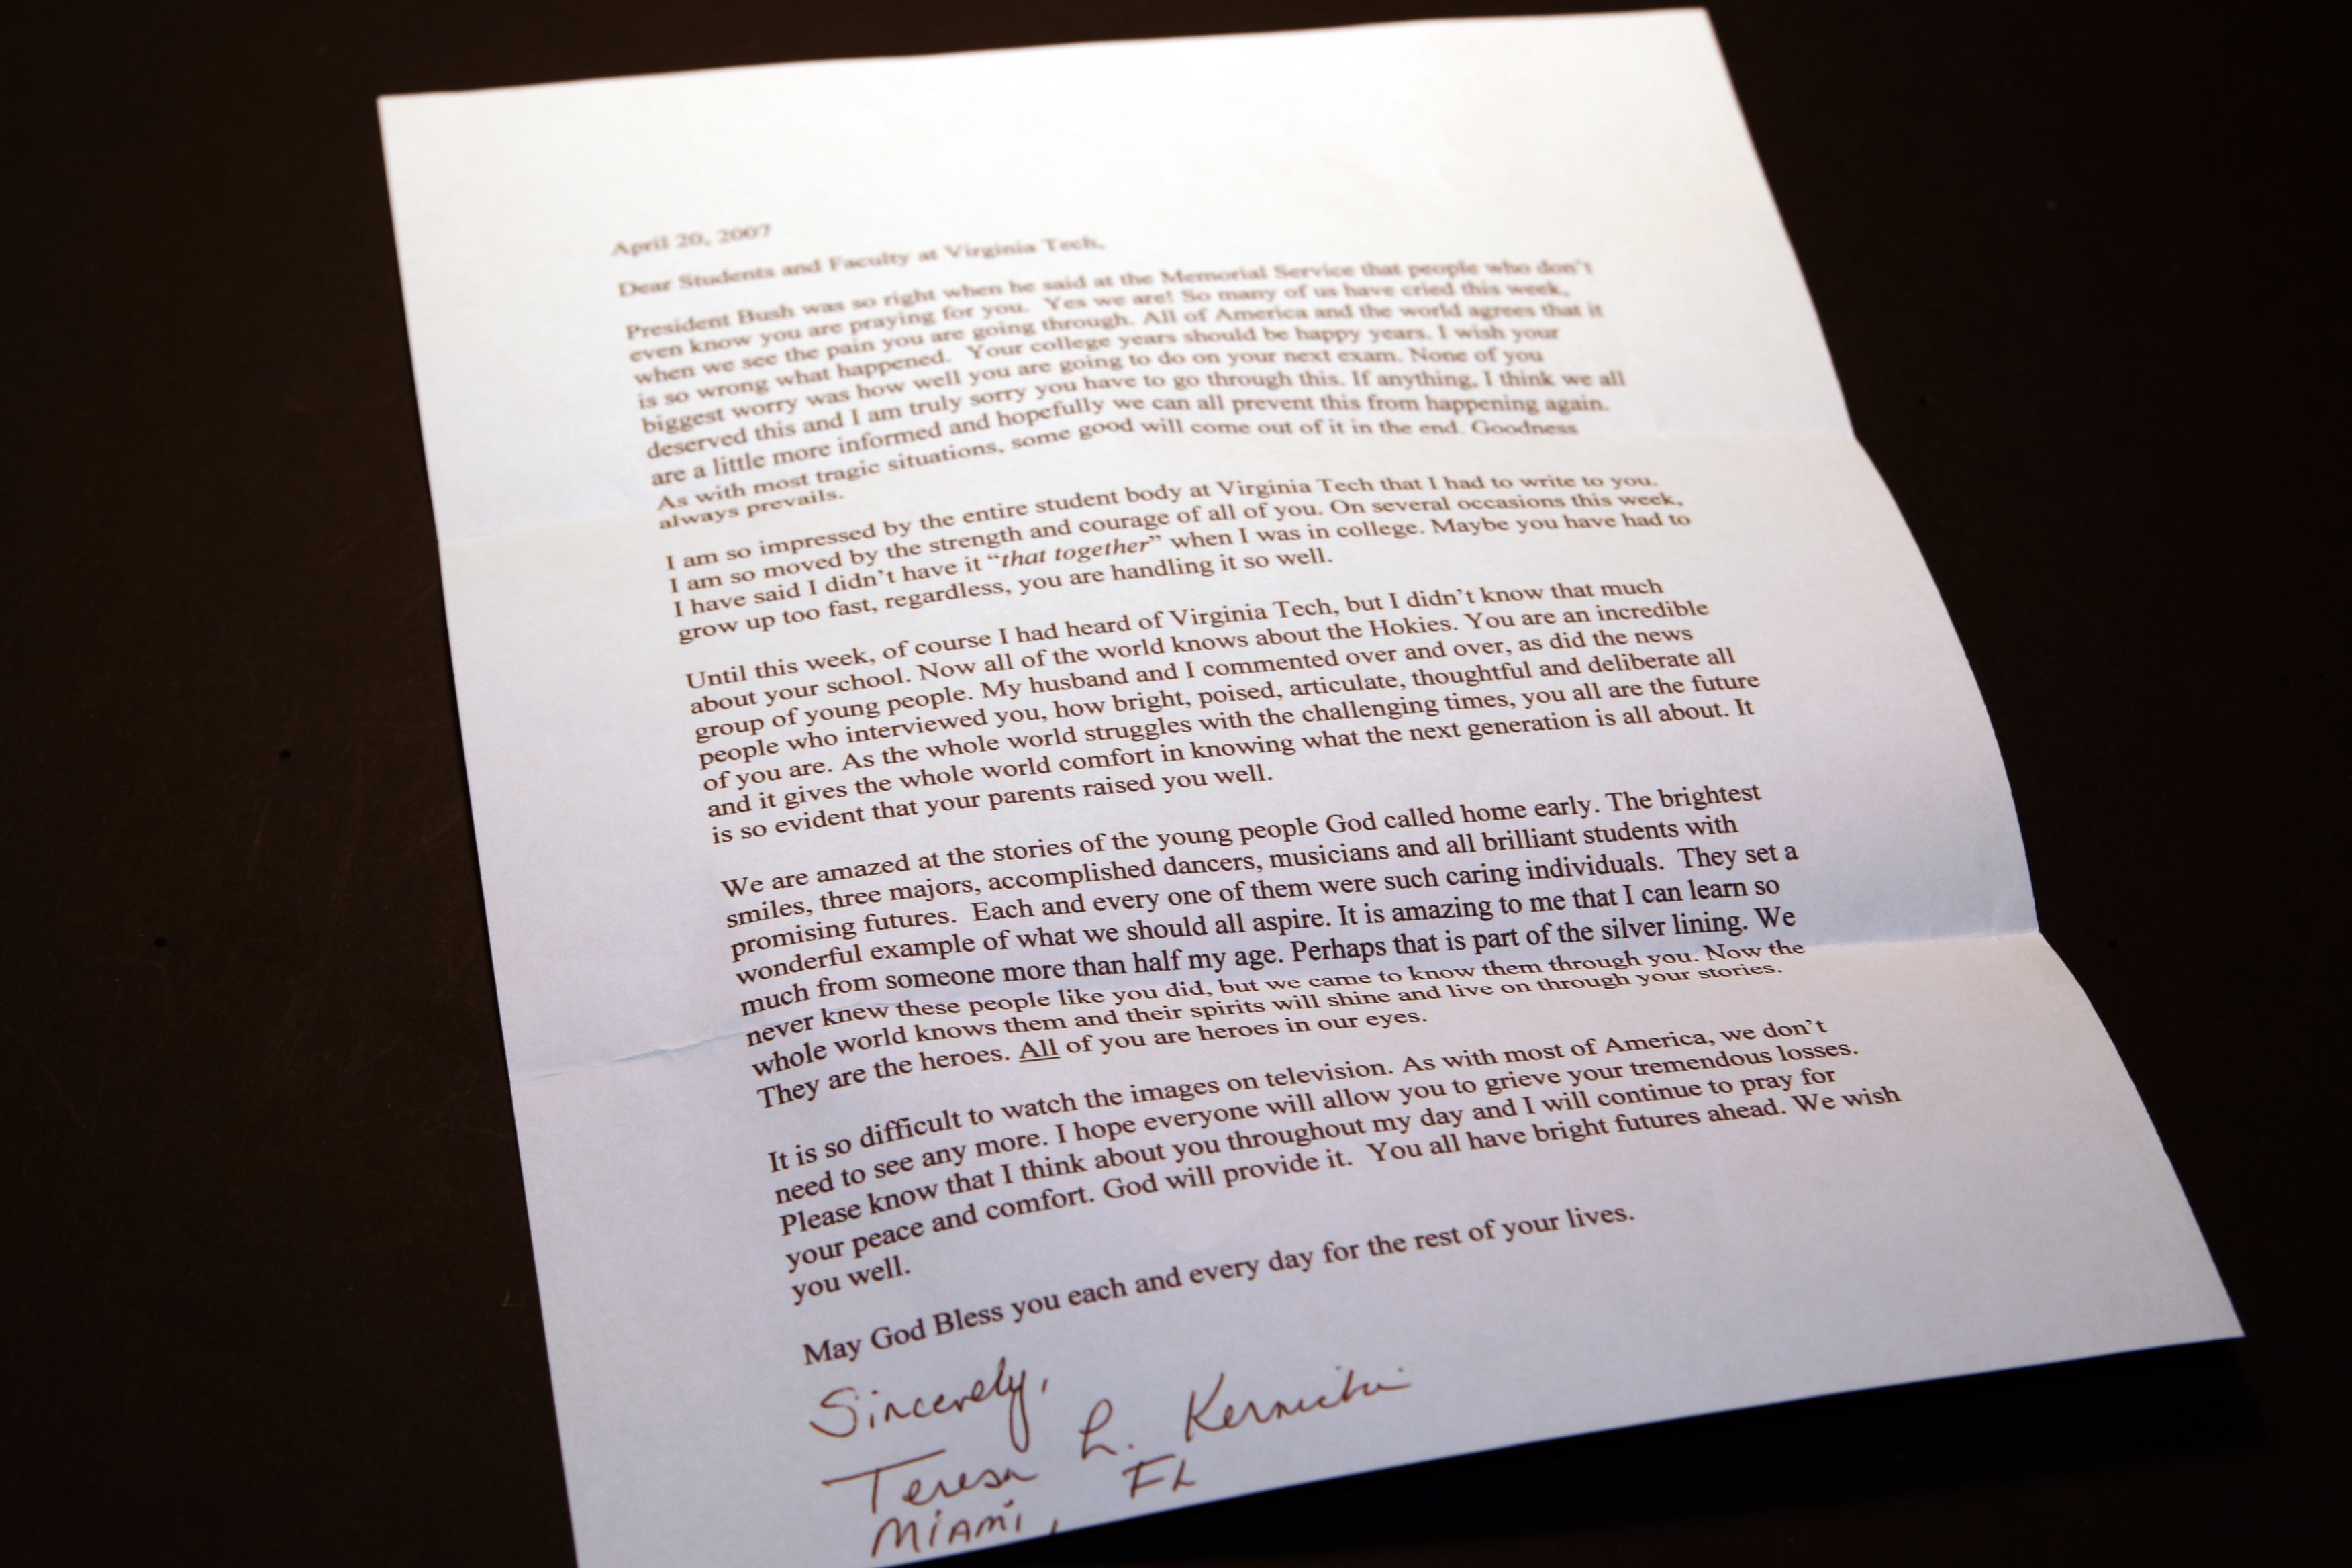 April 20, 2007
Dear Students and Faculty at Virginia Tech,
President Bush was so right when he said at the Memorial Service that people who don't
even know you are praying for you. Yes we are! So many of us have cried this week,
when we see the pain you are going through. All of America and the world agrees that it
is so wrong what happened. Your college years should be happy years. I wish your
biggest worry was how well you are going to do on your next exam. None of you
deserved this and I am truly sorry you have to go through this. If anything, I think we all
are a little more informed and hopefully we can all prevent this from happening again.
As with most tragic situations, some good will come out of it in the end. Goodness
always prevails.
I am so impressed by the entire student body at Virginia Tech that I had to write to you.
I am so moved by the strength and courage of all of you. On several occasions this week,
I have said I didn't have it “that together” when I was in college. Maybe you have had to
grow up too fast, regardless, you are handling it so well.
Until this week, of course I had heard of Virginia Tech, but I didn't know that much
about your school. Now all of the world knows about the Hokies. You are an incredible
group of young people. My husband and I commented over and over, as did the news
people who interviewed you, how bright, poised, articulate, thoughtful and deliberate all
of you are. As the whole world struggles with the challenging times, you all are the future
and it gives the whole world comfort in knowing what the next generation is all about. It
is so evident that your parents raised you well.
We are amazed at the stories of the young people God called home early. The brightest
smiles, three majors, accomplished dancers, musicians and all brilliant students with
promising futures. Each and every one of them were such caring individuals. They set a
wonderful example of what we should all aspire. It is amazing to me that I can learn so
much from someone more than half my age. Perhaps that is part of the silver lining. We
never knew these people like you did, but we came to know them through you. Now the
whole world knows them and their spirits will shine and live on through your stories.
They are the heroes. All of you are heroes in our eyes.
It is so difficult to watch the images on television. As with most of America, we don't
need to see any more. I hope everyone will allow you to grieve your tremendous losses.
Please know that I think about you throughout my day and I will continue to pray for
your peace and comfort. God will provide it. You all have bright futures ahead. We wish
you well.
May God Bless you each and every day for the rest of your lives.
Sincerely,
Teresa L.
Miami, FL